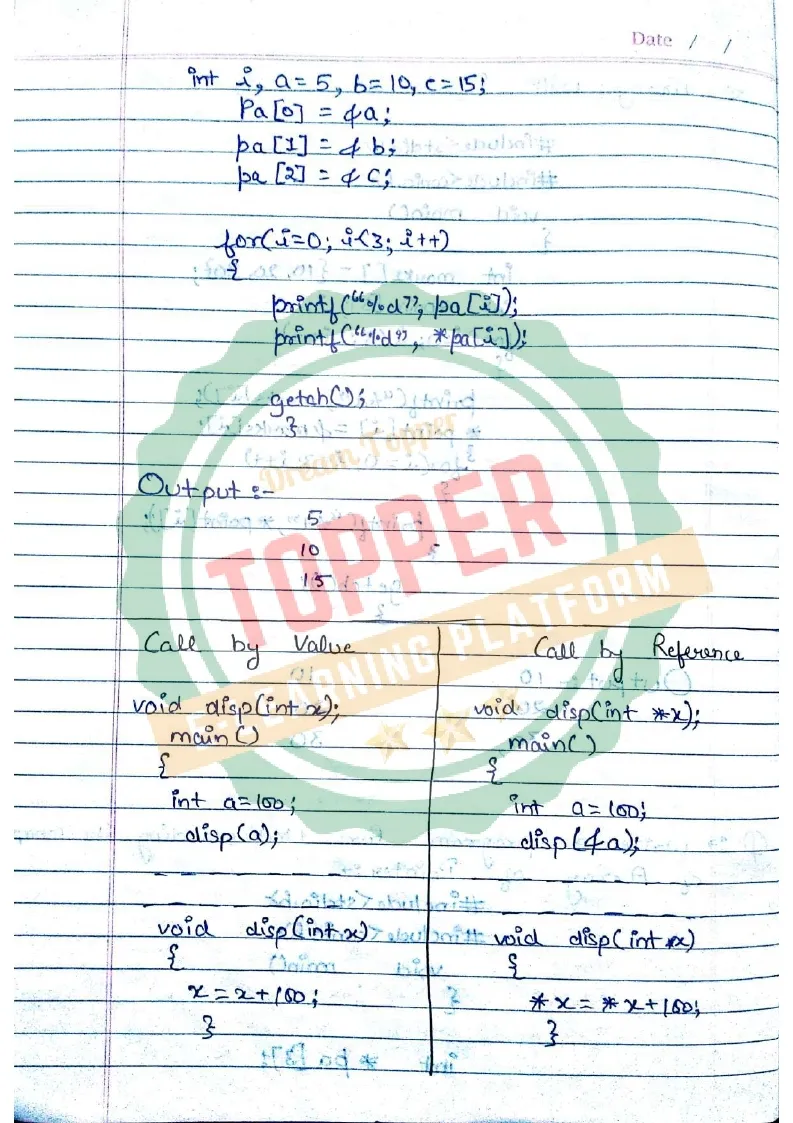 Date / /
int i, a=5, b=10, c=15;
Pa[0] = &a;
pa[1] = & b;
pa [2] = & c;
for(i=0; i<3; i++)
{
printf(“%d”, pa[i]);
printf(“%d”, *pa[i]);
getch();
}
Dream Topper
Output :-
5
10
15
TOPPER
E-LEARNING PLATFORM
Call by Value
void disp(int x);
main()
{
int a=100;
disp(a);
void disp(int x)
{
x = x+100;
}
Call by Reference
void disp(int *x);
main()
{
int a=100;
disp(&a);
void disp(int *x)
{
*x = *x+100;
}